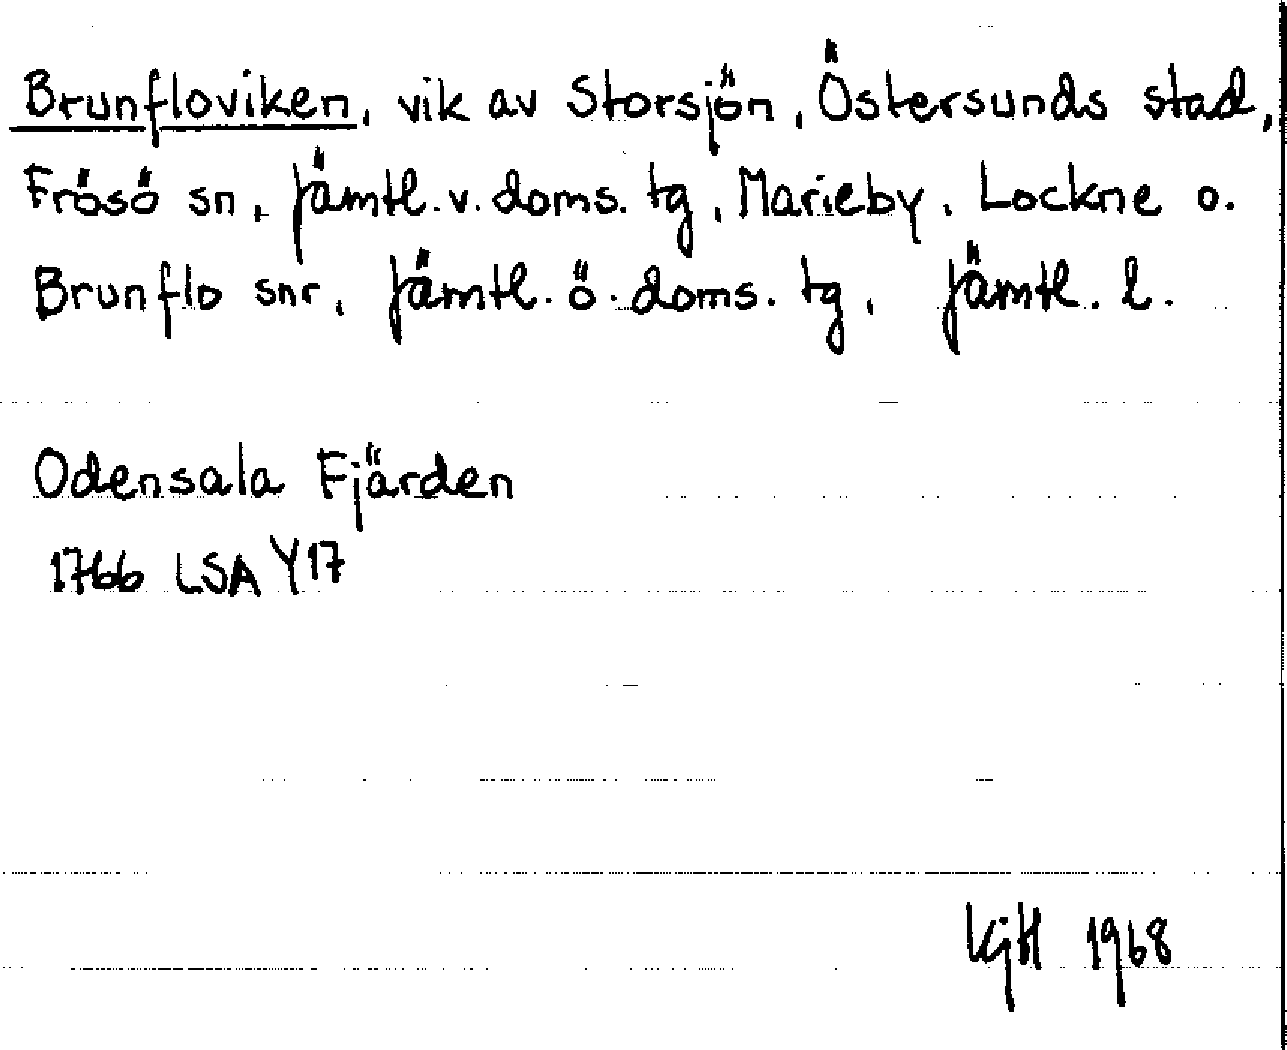 Brunfloviken, vik av Storsjön, Östersunds stad,
Frösö sn, Jämtl. v. doms. tg, Marieby, Lockne o.
Brunflo snr, Jämtl. ö. doms. tg, Jämtl. l.
Odensala Fjärden
1766 LSA Y17
KjH 1968